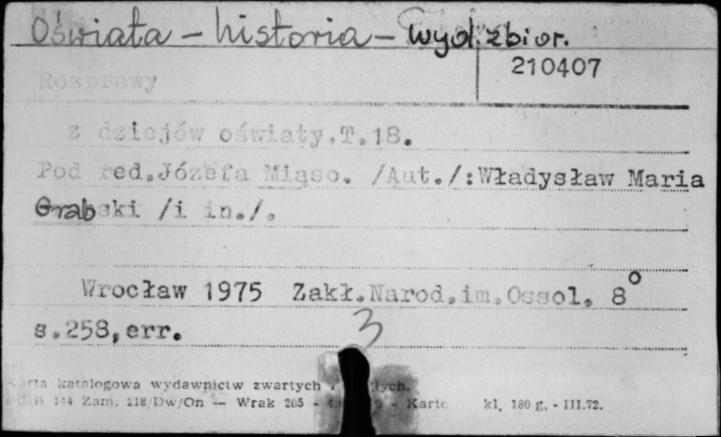 Oświata - historia - wyd. zbior.
210407
Rozprawy
z dziejów oświaty.T.18.
Pod red.Józefa Miąso. /Aut./:Władysław Maria
Grabski /i in./.
Wrocław 1975 Zakł.Narod.im.Ossol. 8°
s.258,err.
3
karta katalogowa wydawnictw zwartych
144 Zam. 218/Dw/On — Wrak 205 - - Karto kl. 180 g. - III.72.